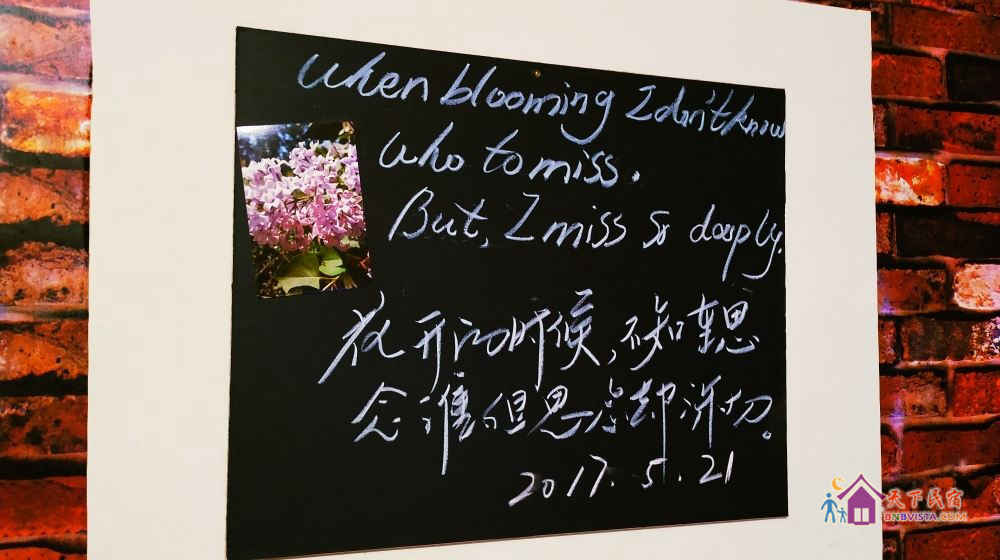 When blooming I don't know
who to miss.
But, I miss so deeply.
花开的时候,不知重思
念谁但思念却深切。
2017.5.21
天下民宿
BNBVISTA.COM